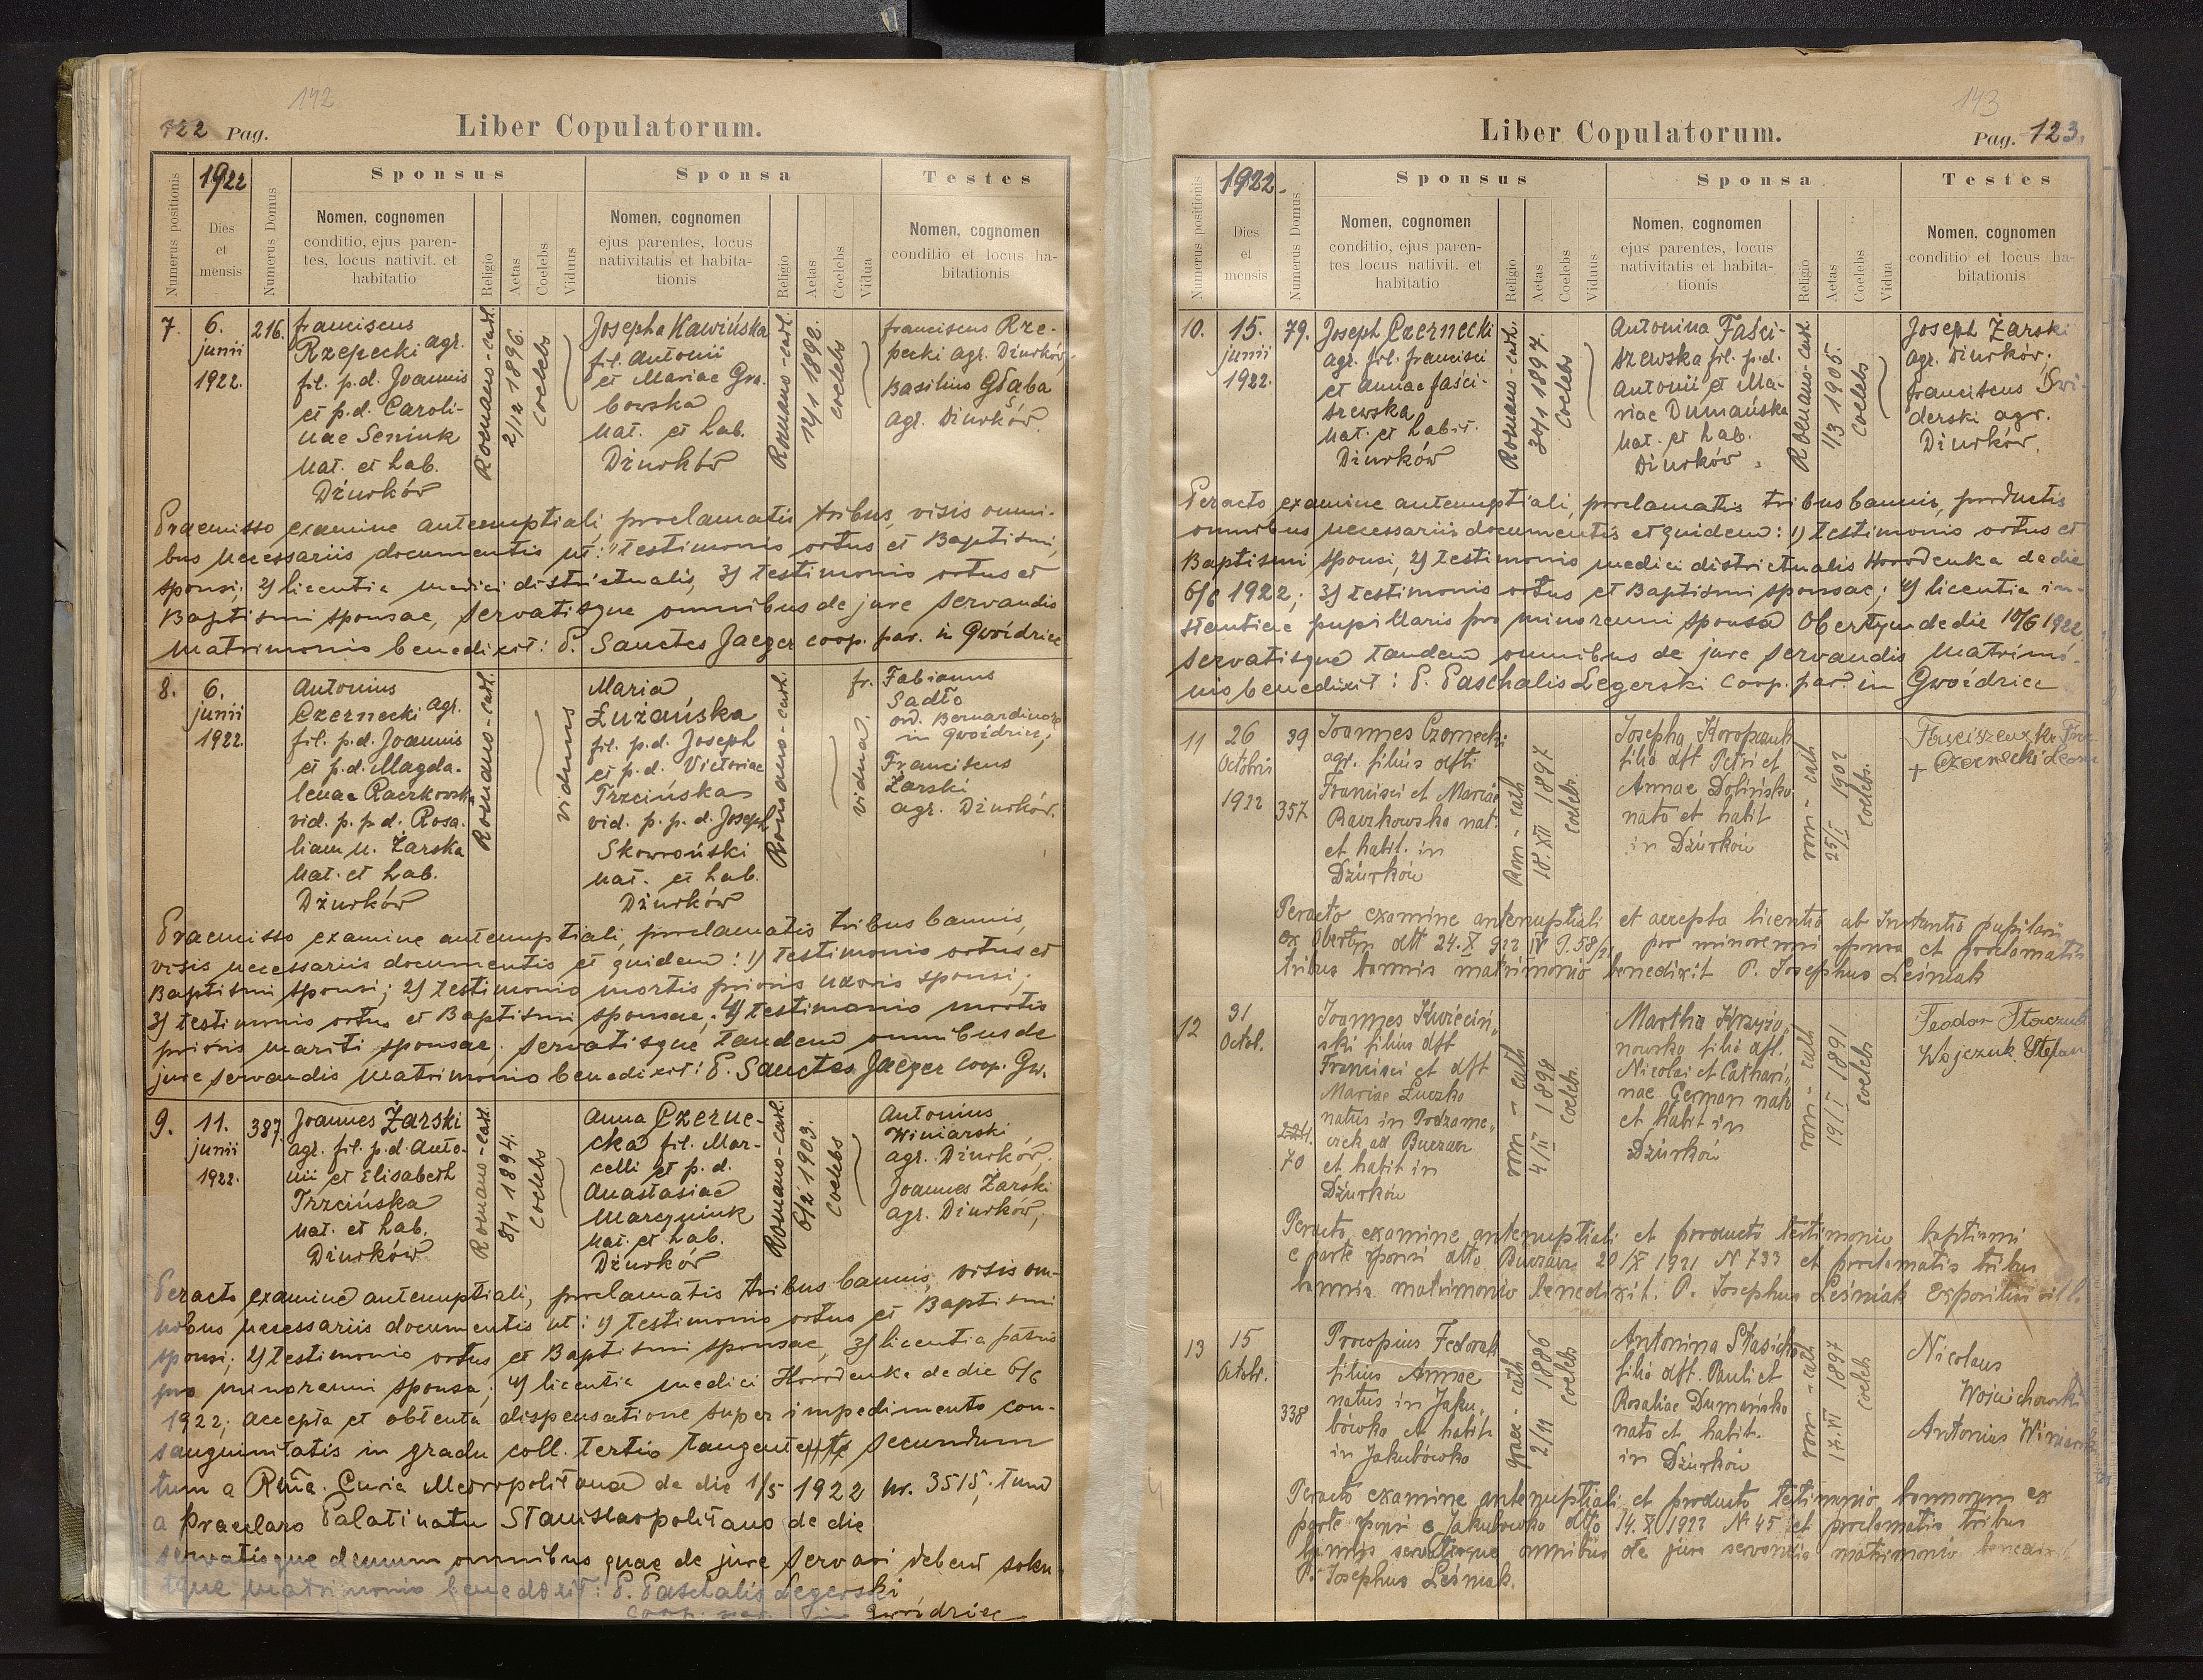 142
122 Pag.
Liber Copulatorum.
Numerus positionis
1922
Dies
et
mensis
Numerus Domus
Sponsus
Nomen, cognomen
conditio, ejus paren-
tes, locus nativit. et
habitatio
Religio
Aetas
Coelebs
Viduus
Sponsa
Nomen, cognomen
ejus parentes, locus
nativitatis et habita-
tionis
Religio
Aetas
Coelebs
Vidua
Testes
Nomen, cognomen
conditio et locus ha-
bitationis
7.
6.
junii
1922.
216.
Franciscus
Rzepecki agr.
fil. p.d. Joannis
et p.d. Caroli-
nae Seniuk
Nat. et hab.
Dżurków
Romano-cath.
2/12 1896.
coelebs
Josepha Kawińska
fil. Antonii
et Mariae Gra-
bowska
Nat. et hab.
Dżurków
Romano-cath.
12/1 1892.
coelebs
Franciscus Rze-
pecki agr. Dżurków,
Basilius Głąba
agr. Dżurków.
Praemisso examine antenuptiali, proclamatis tribus, visis omni-
bus necessariis documentis ut: 1) testimonio ortus et Baptismi,
sponsi; 2) licentia medici districtualis, 3) testimonio ortus et
Baptismi sponsae, servatisque omnibus de jure servandis
matrimonio benedixit: P. Sanctes Jaeger coop. par. in Gwoździec
8.
6.
junii
1922.
Antonius
Czernecki agr.
fil. p.d. Joannis
et p.d. Magda-
lenae Raczkowska
vid. p. p.d. Rosa-
liam n. Żarska
Nat. et hab.
Dżurków
Romano-cath.
viduus
Maria
Łużańska
fil. p.d. Joseph
et p.d. Victoriae
Trzcińska
vid. p. p. d. Joseph
Skowroński
Nat. et hab.
Dżurków
Romano-cath.
vidua.
fr. Fabianus
Sadło
ord. Bernardinorum
in Gwoździec,
Franciscus
Żarski
agr. Dżurków.
Praemisso examine antenuptiali, proclamatis tribus bannis,
visis necessariis documentis et quidem: 1) testimonio ortus et
Baptismi sponsi; 2) testimonio mortis prioris uxoris sponsi;
3) testimonio ortus et Baptismi sponsae; 4) testimonio mortis
prioris mariti sponsae, servatisque tandem omnibus de
jure servandis matrimonio benedixit: P. Sanctes Jaeger coop. Gw.
9.
11.
junii
1922.
387.
Joannes Żarski
agr. fil. p.d. Anto-
nii et Elisabeth
Trzcińska
Nat. et hab.
Dżurków
Romano-cath.
8/1 1894.
coelebs
Anna Czerne-
cka fil. Mar-
celli et p.d.
Anastasiae
Marcyniuk
Nat. et hab.
Dżurków
Romano-cath.
6/2 1903.
coelebs
Antonius
Winiarski
agr. Dżurków,
Joannes Żarski
agr. Dżurków,
Peracto examine antenuptiali, proclamatis tribus bannis, visis om-
nibus necessariis documentis ut: 1) testimonio ortus et Baptismi
sponsi; 2) testimonio ortus et Baptismi sponsae, 3) licentia patris
pro minorenni sponsa; 4) licentia medici Horodenka de die 6/6
1922; accepta et obtenta dispensatione super impedimento con-
sanguinitatis in gradu coll. tertio tangente secundum
tum a Rma. Curia Metropolitana de die 1/5 1922 nr. 3515, tum
a praeclaro Palatinatu Stanislaopolitano de die
servatisque demum omnibus quae de jure servari debent
matrimonio benedixit: P. Paschalis Legerski
coop. par. in Gwoździec
143
Liber Copulatorum.
Pag. 123.
Numerus positionis
1922.
Dies
et
mensis
Numerus Domus
Sponsus
Nomen, cognomen
conditio, ejus paren-
tes locus nativit. et
habitatio
Religio
Aetas
Coelebs
Viduus
Sponsa
Nomen, cognomen
ejus parentes, locus
nativitatis et habita-
tionis
Religio
Aetas
Coelebs
Vidua
Testes
Nomen, cognomen
conditio et locus ha-
bitationis
10.
15.
junii
1922.
79.
Joseph Czernecki
agr. fil. Francisci
et Annae Faści-
szewska
Nat. et habit.
Dżurków
Romano-cath.
30/1 1897.
coelebs
Antonina Faści-
szewska fil. p.d.
Antonii et Ma-
riae Dumańska
Nat. et hab.
Dżurków.
Romano-cath
1/3 1905.
coelebs
Joseph Żarski
agr. Dżurków;
Franciscus Świ-
derski agr.
Dżurków.
Peracto examine antenuptiali, proclamatis tribus bannis, productis
omnibus necessariis documentis et quidem: 1) testimonio ortus et
Baptismi sponsi, 2) testimonio medici districtualis Horodenka de die
6/6 1922; 3) testimonio ortus et Baptismi sponsae; 4) licentia in-
stantiae pupillaris pro minorenni sponsa Obertyn de die 10/6 1922
servatisque tandem omnibus de jure servandis matrimo-
nio benedixit: P. Paschalis Legerski coop. par. in Gwoździec
11
26
Octobris
1922
39
357
Joannes Czernecki
agr. filius dfti
Francisci et Mariae
Raczkowska nat.
et habit. in
Dżurków
Rom-cath
18.XII 1897
coelebs.
Josepha Koropczuk
filia dft Petri et
Annae Dolińska
nata et habit
in Dżurków
rom-cath
25/I 1902
coelebs.
Franciszek
+ Czernecki
Peracto examine antenuptiali et accepta licentia ab Instantia pupilari
ex Obertyn dtt 24.X 922 IV P. 58/21 pro minorenni sponsa et proclamatis
tribus bannis matrimonio benedixit P. Josephus Leśniak
12
31
Octob.
224.
70
Joannes Kwieciń-
ski filius dft
Francisci et dft
Mariae Łuczko
natus in Podzame-
czek ad Buczacz
et habit in
Dżurków
rom-cath
4/II 1898
coelebs.
Martha Krzyża-
nowska filia dft.
Nicolai et Cathari-
nae German nata
et habit in
Dżurków
rom-cath
19/I 1891
coelebs
Teodor
Wojczuk Stefan
Peracto examine antenuptiali et producto testimonio baptismi
e parte sponsi dtto Buczacz 20/IX 1921 N 733 et proclamatis tribus
bannis matrimonio benedixit. P. Josephus Leśniak Expositus
13
15
Octobr.
338
Procopius Fedorak
filius Annae
natus in Jaku-
bówka et habit
in Jakubówka
graec-cath
2/11 1886
coelebs
Antonina Stasicka
filia dft. Pauli et
Rosaliae Dumańska
nata et habit.
in Dżurków
rom-cath
17.VI 1897
coelebs
Nicolaus
Wojciechowski
Antonius Winiarski
Peracto examine antenuptiali et producto testimonio bannorum ex
parte sponsi e Jakubówka dtto 14.X 1922 N 45 et proclamatis tribus
bannis servatisque omnibus de jure servandis matrimonio benedixit
P. Josephus Leśniak.